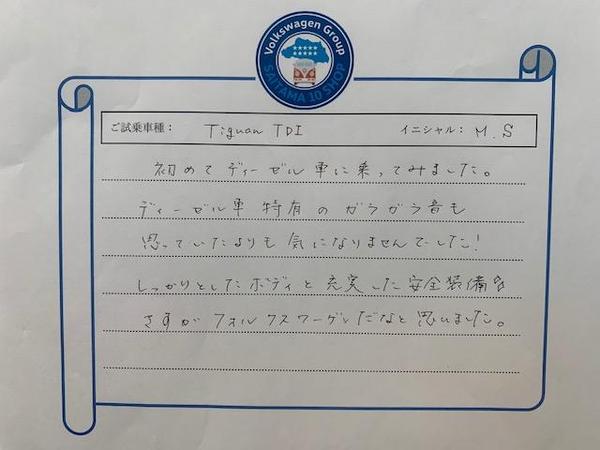 Volkswagen Group
SAITAMA 10 SHOP
ご試乗車種： Tiguan TDI イニシャル： M.S
初めてディーゼル車に乗ってみました。
ディーゼル車特有のガラガラ音も
思っていたよりも気になりませんでした！
しっかりとしたボディと充実した安全装備は
さすがフォルクスワーゲンだなと思いました。